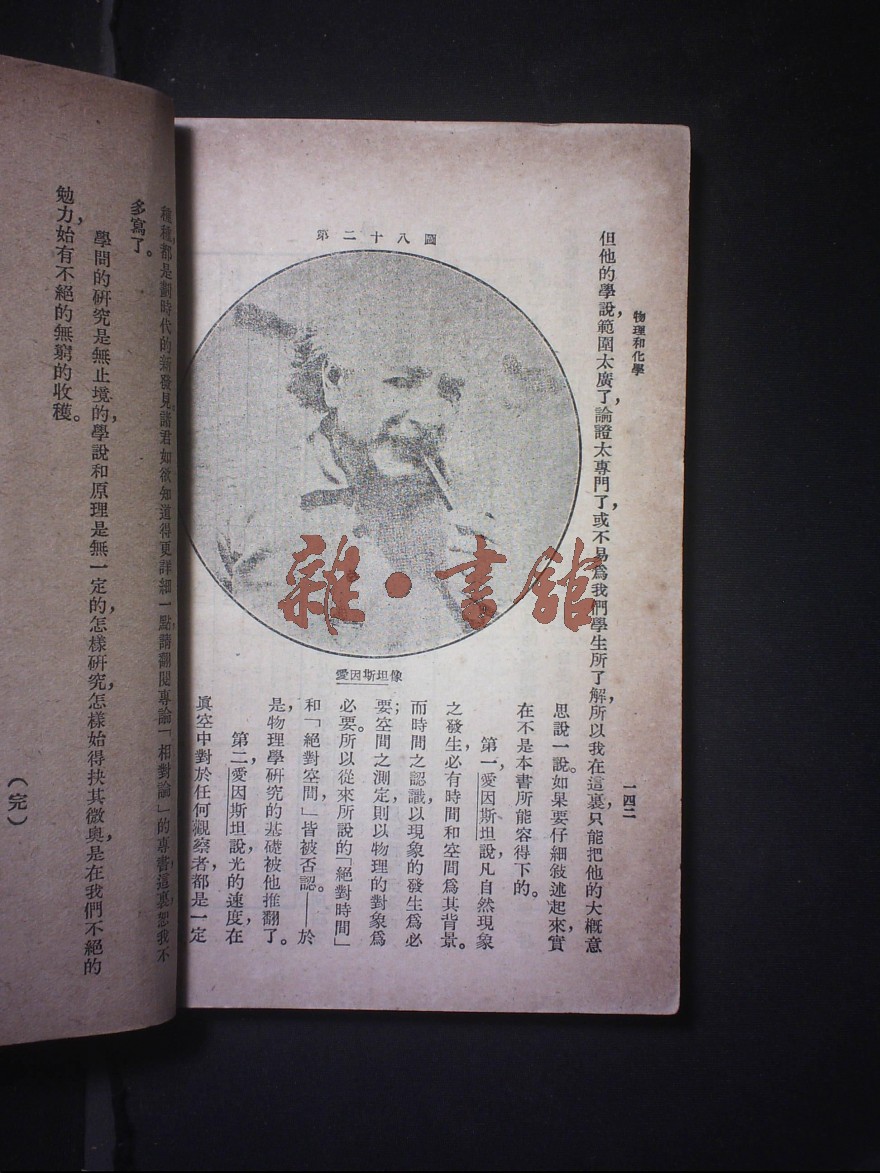 物理和化學
一四二
但他的學說，範圍太廣了，論證太專門了，或不易爲我們學生所了解，所以我在這裏，只能把他的大概意
思說一說。如果要仔細敍述起來，實
在不是本書所能容得下的。
第一，愛因斯坦說，凡自然現象
之發生，必有時間和空間爲其背景。
而時間之認識，以現象的發生爲必
要；空間之測定，則以物理的對象爲
必要。所以從來所說的「絕對時間」
和「絕對空間」皆被否認。——於
是，物理學研究的基礎被他推翻了。
第二，愛因斯坦說，光的速度，在
眞空中對於任何觀察者都是一定
第二十八圖
愛因斯坦像
雜·書館
種種，都是劃時代的新發見。諸君如欲知道得更詳細一點，請翻閱專論「相對論」的專書，這裏恕我不
多寫了。
學問的研究是無止境的，學說和原理是無一定的，怎樣研究，怎樣始得抉其微奧，是在我們不絕的
勉力，始有不絕的無窮的收穫。
（完）